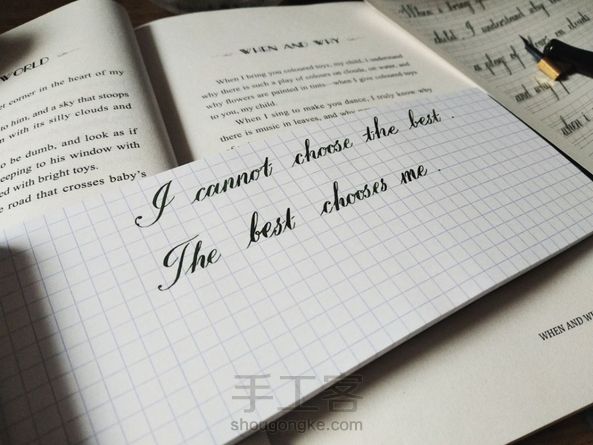 WORLD
et corner in the heart of my
to him, and a sky that stoops
n with its silly clouds and
o be dumb, and look as if
eeping to his window with
ed with bright toys.
e road that crosses baby's
WHEN AND WHY
When I bring you coloured toys, my child, I understand
why there is such a play of colours on clouds, on water, and
why flowers are painted in tints—when I give coloured toys
to you, my child.
When I sing to make you dance, I truly know why
there is music in leaves, and why
When I bring
child I understand why
a play of
on clouds
and why
when i
I cannot choose the best.
The best chooses me.
WHEN AND WH
手工客
shougongke.com